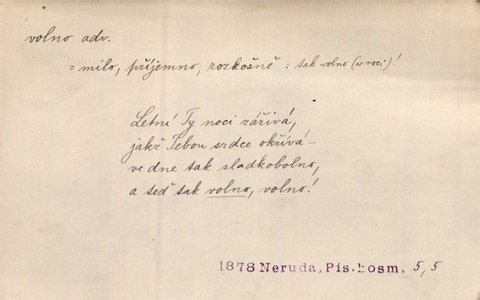 volno adv.
= milo, příjemno, rozkošně : tak volno (v noci)!
Letní Ty noci zářivá,
jakž Tebou srdce okřívá –
ve dne tak sladkobolno,
a teď tak volno, volno!
1878 Neruda, Pís. kosm. 5,5